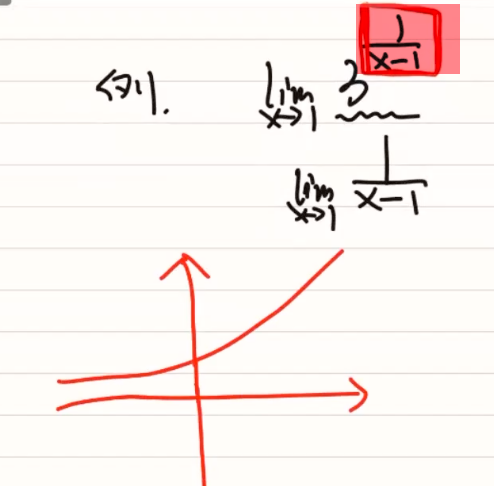 例. lim x→1 3^(1/(x-1))
lim x→1 1/(x-1)